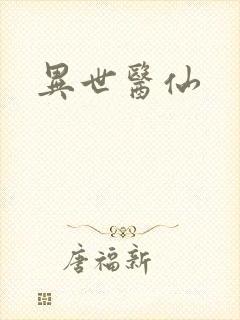 異世醫仙
唐福新